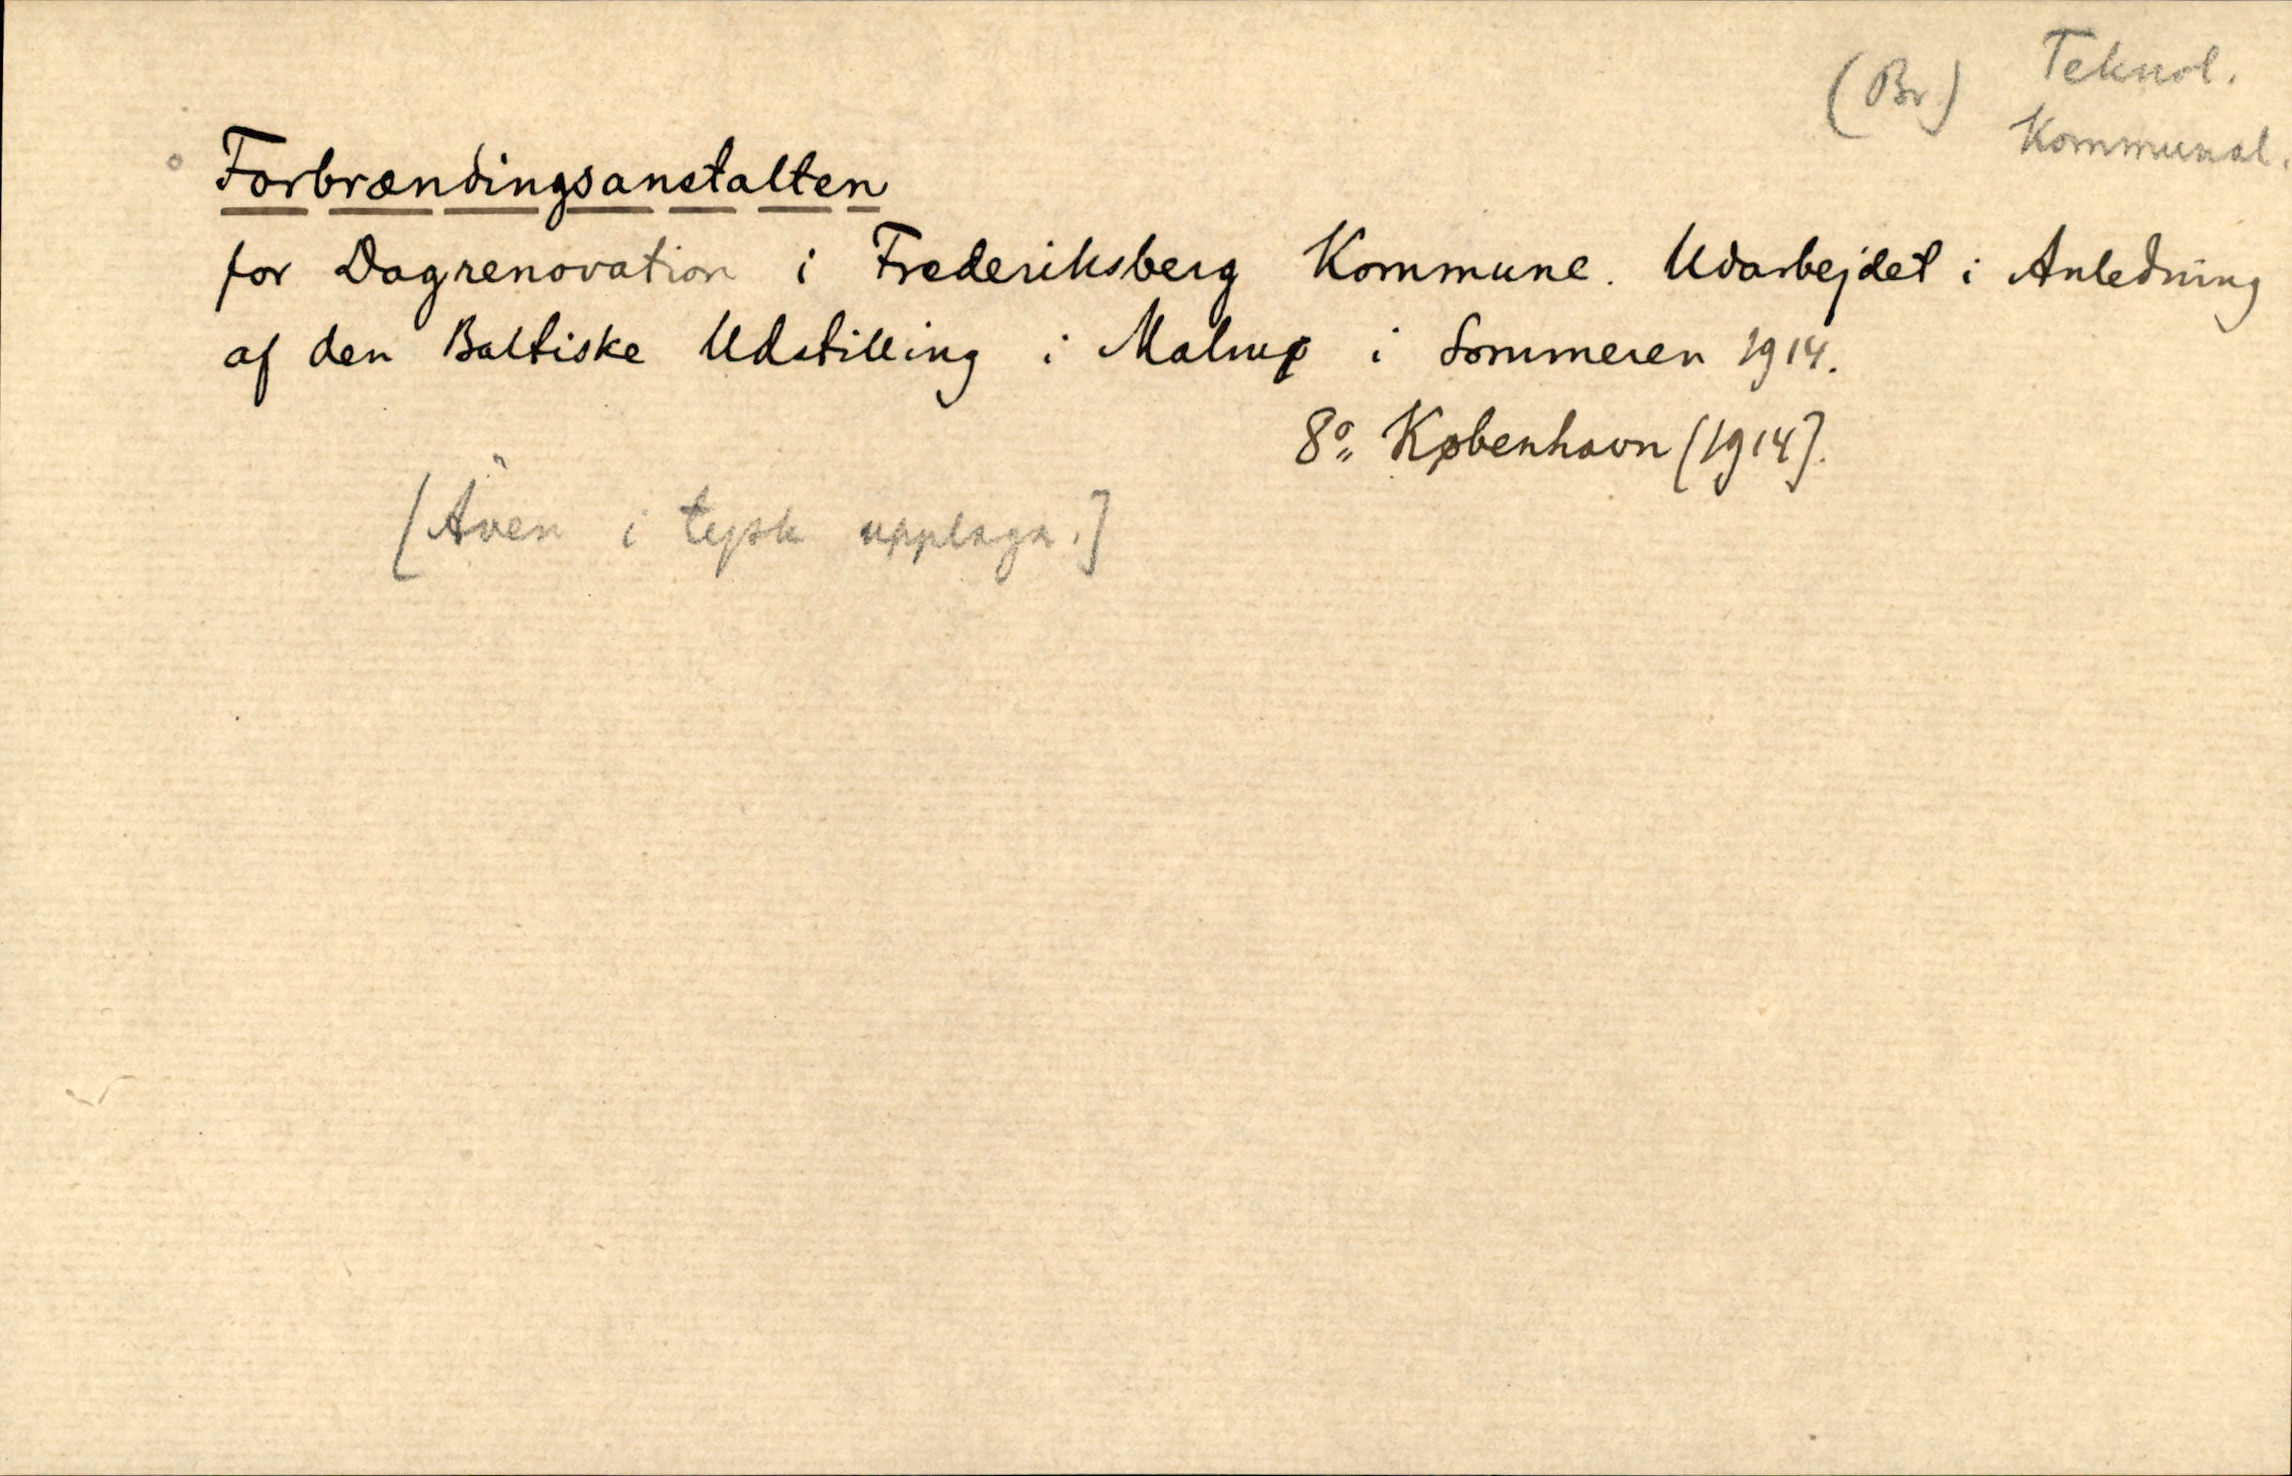 (Br.) Teknol.
Kommunal.
Forbrændingsanstalten
for Dagrenovation i Frederiksberg Kommune. Udarbejdet i Anledning
af den Baltiske Udstilling i Malmø i Sommeren 1914.
8:o København [1914].
[Även i tysk upplaga.]